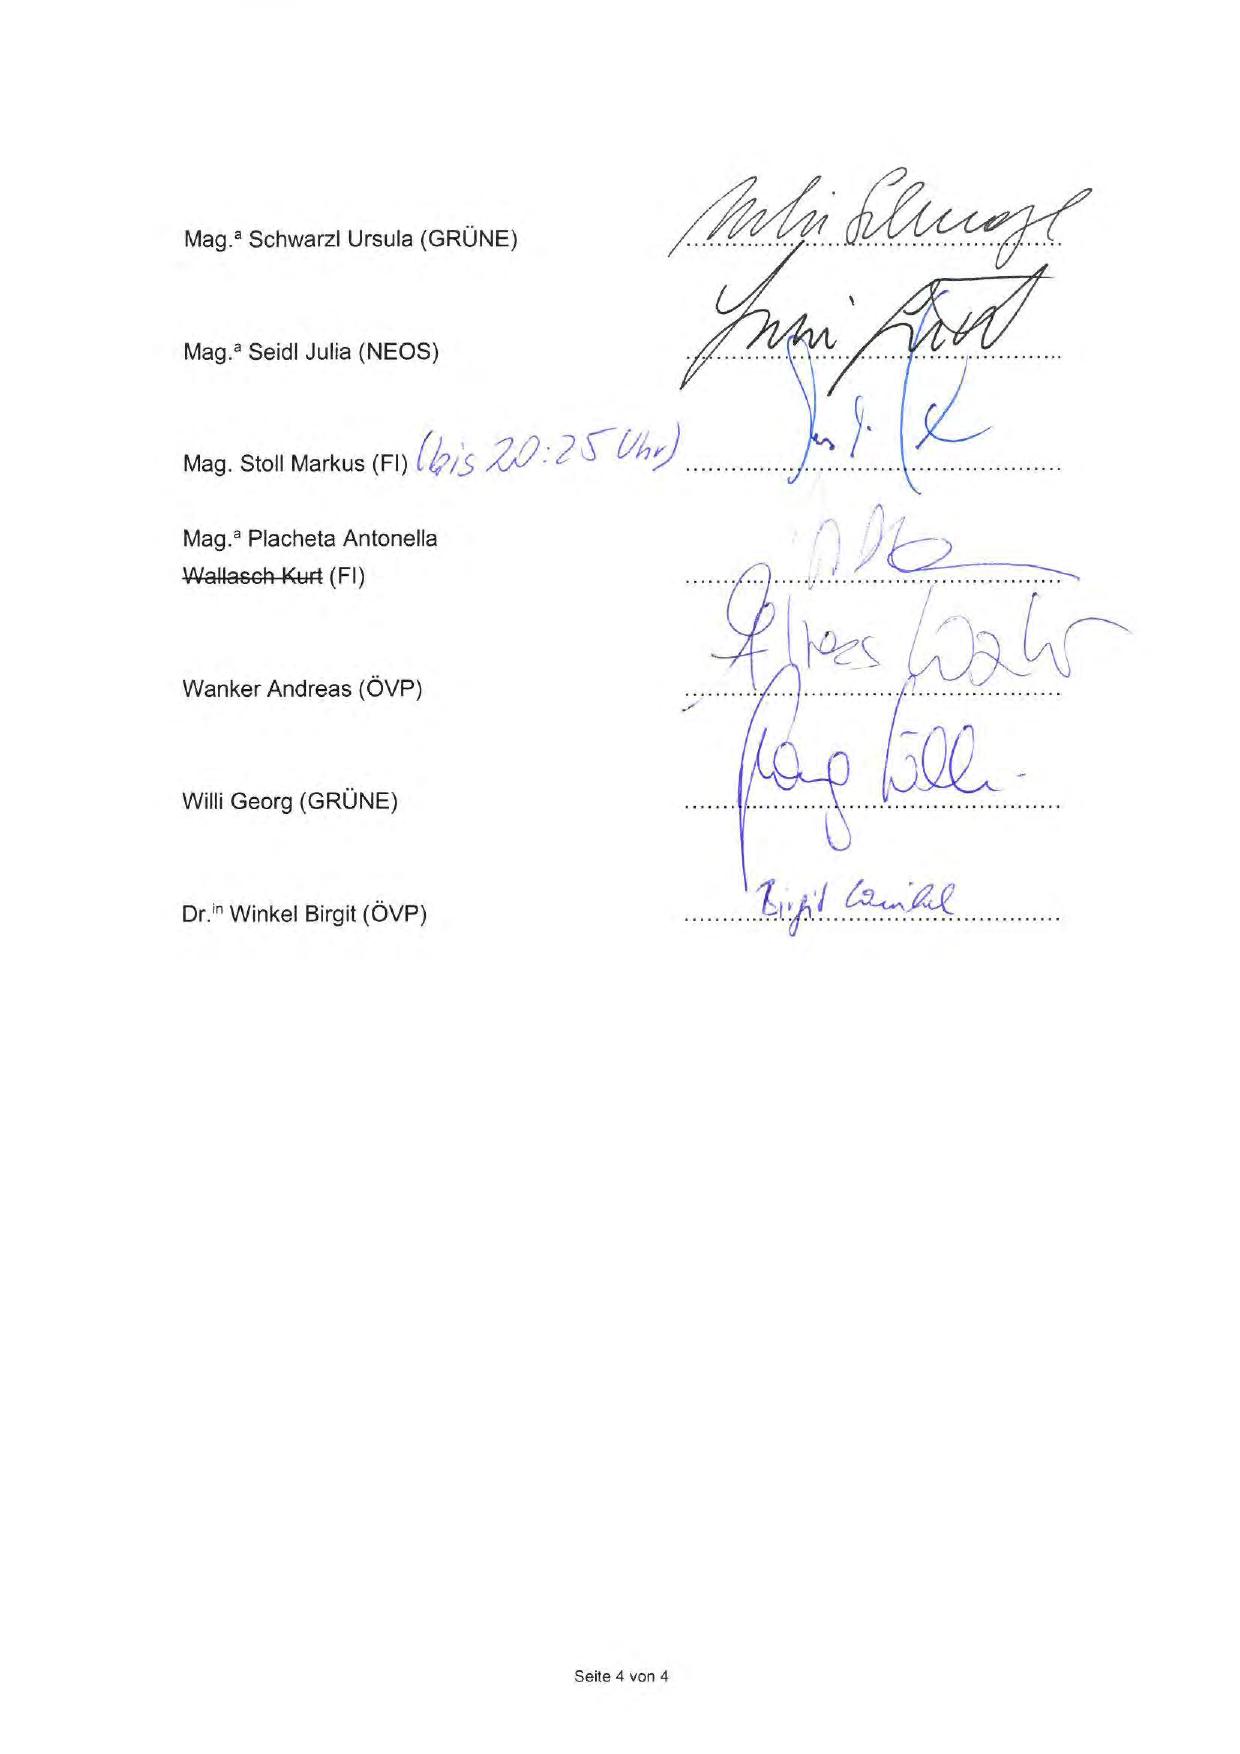 Mag.ª Schwarzl Ursula (GRÜNE)
Mag.ª Seidl Julia (NEOS)
Mag. Stoll Markus (FI) (bis 20:25 Uhr)
Mag.ª Placheta Antonella
Wallasch Kurt (FI)
Wanker Andreas (ÖVP)
Willi Georg (GRÜNE)
Dr.ⁱⁿ Winkel Birgit (ÖVP) Birgit Winkel
Seite 4 von 4